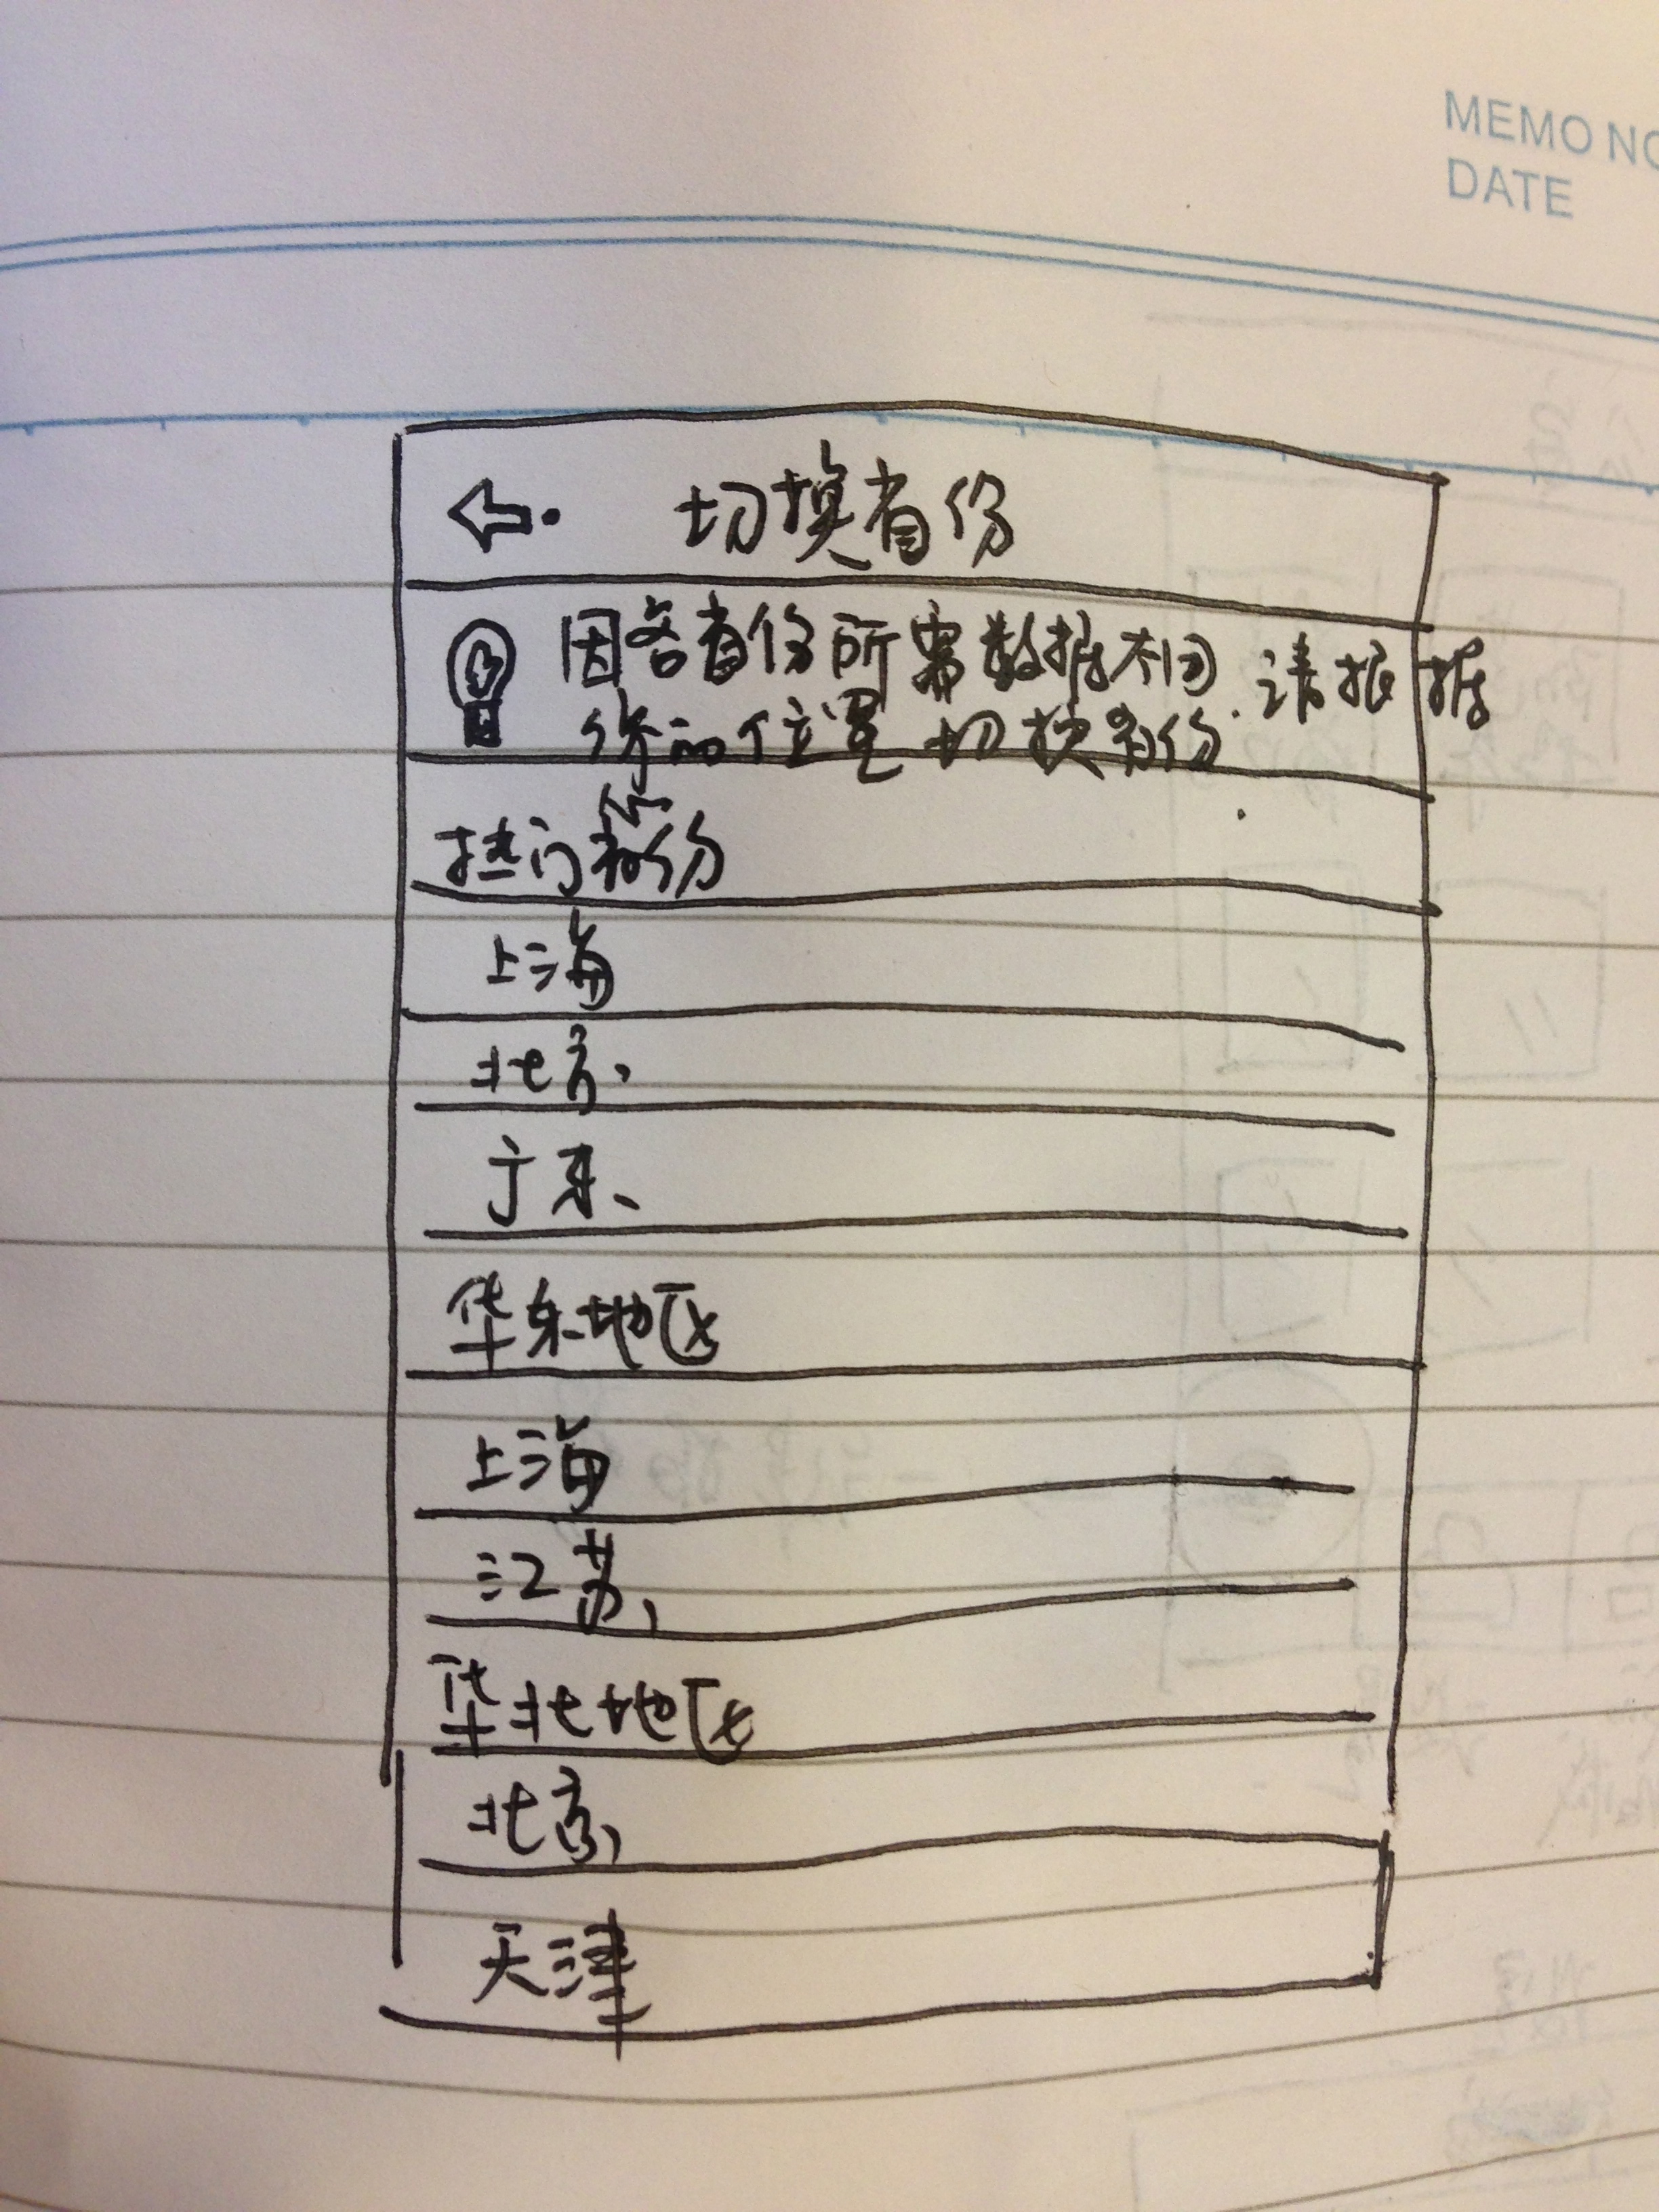 MEMO NO
DATE
切换省份
因各省份所需数据不同.请根据
你的位置切换省份.
热门省份
上海
北京
广东
华东地区
上海
江苏
华北地区
北京
天津